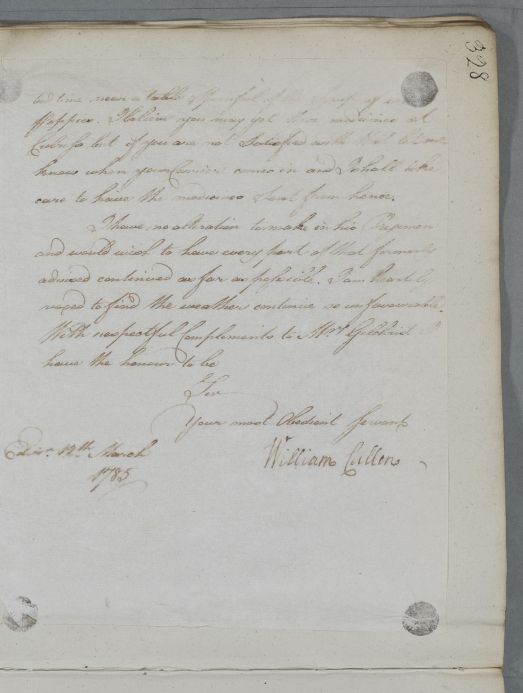 328
bed time near a table Spoonful of the Syrup of
Poppies. I believe you may get these medicines at
but if you are not Satisfied with that let me
know when your Carrier comes in and I shall take
care to have the medicines Sent from hence.
I have no alteration to make in his Regimen
and would wish to have every part of that formerly
advised continued as far as possible. I am heartily
vexed to find the weather continue so unfavourable.
With respectful Complements to Mrs. Gilchrist I
have the honour to be
Sir
Your most Obedient Servant
Edinr. 12th. March William Cullen
1785